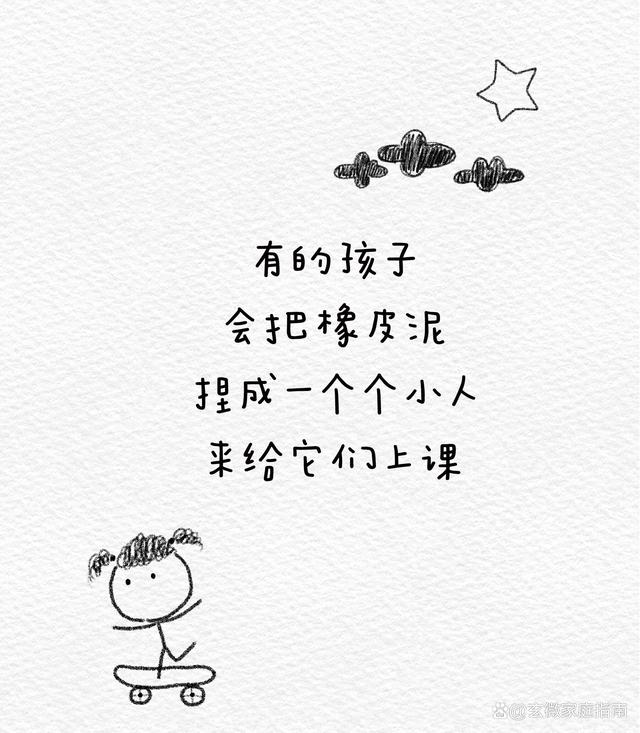 有的孩子
会把橡皮泥
捏成一个个小人
来给它们上课
@玄微家庭指南